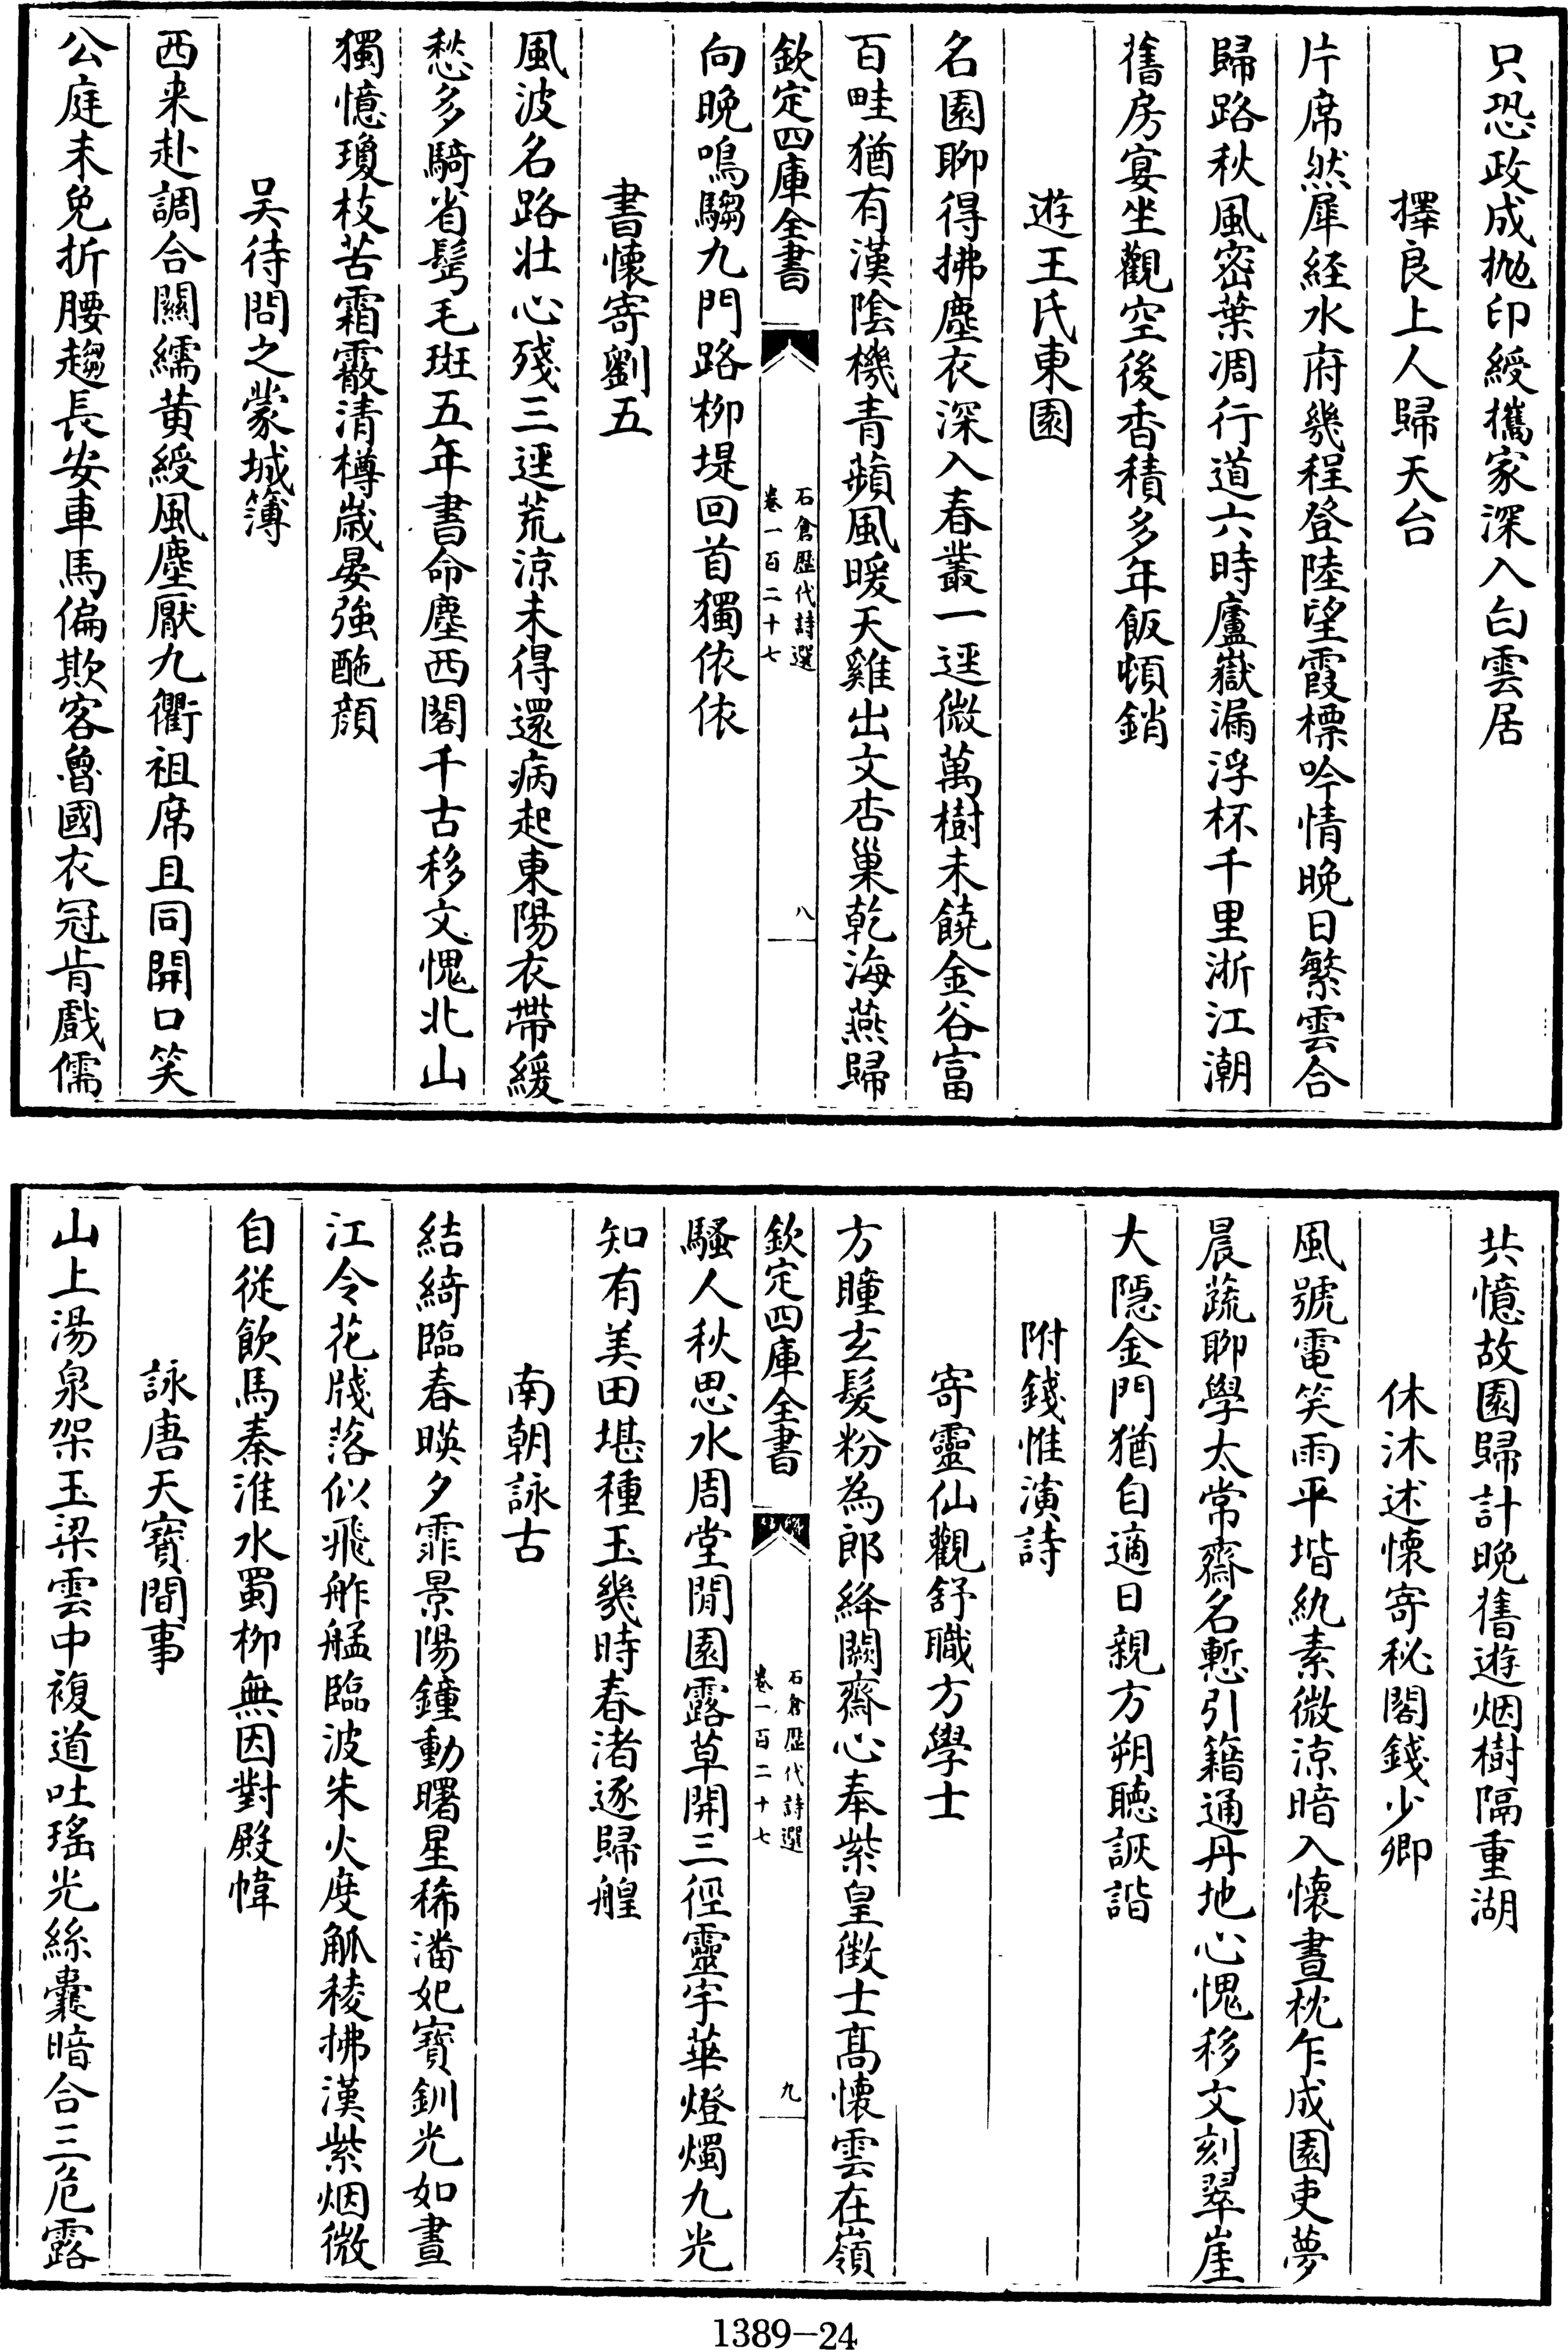 只恐政成抛印綬攜家深入白雲居
擇良上人歸天台
片席然犀経水府幾程登陸望霞標吟情晚日繁雲合
歸路秋風密葉凋行道六時廬嶽漏浮杯千里浙江潮
舊房宴坐觀空後香積多年飯頓銷
遊王氏東園
名園聊得拂塵衣深入春叢一逕微萬樹未饒金谷富
百畦猶有漢陰機青蘋風暖天雞出文杏巢乾海燕歸
欽定四庫全書
石倉歷代詩選
卷一百二十七
八
向晚鳴騶九門路柳堤回首獨依依
書懷寄劉五
風波名路壯心殘三逕荒涼未得還病起東陽衣帶緩
愁多騎省髩毛斑五年書命塵西閣千古移文愧北山
獨憶瓊枝苦霜霰清樽歳晏強酡顔
吴待問之蒙城簿
西来赴調合關繻黄綬風塵厭九衢祖席且同開口笑
公庭未免折腰趨長安車馬偏欺客魯國衣冠肯戲儒
共憶故園歸計晚舊遊烟樹隔重湖
休沐述懷寄秘閣錢少卿
風號電笑雨平堦紈素微涼暗入懷晝枕乍成園吏夢
晨蔬聊學太常齋名慙引籍通丹地心愧移文刻翠崖
大隠金門猶自適日親方朔聴詼諧
附錢惟演詩
寄靈仙觀舒職方學士
方瞳玄髮粉為郎絳闕齋心奉紫皇徴士髙懷雲在嶺
欽定四庫全書
石倉歷代詩選
卷一百二十七
九
騷人秋思水周堂閒園露草開三徑靈宇華燈燭九光
知有美田堪種玉幾時春渚逐歸艎
南朝詠古
結綺臨春暎夕霏景陽鐘動曙星稀潘妃寳釧光如晝
江令花牋落似飛舴艋臨波朱火度觚稜拂漢紫烟微
自從飲馬秦淮水蜀柳無因對殿幃
詠唐天寳間事
山上湯泉架玉梁雲中複道吐瑤光絲囊暗合三危露
1389-24